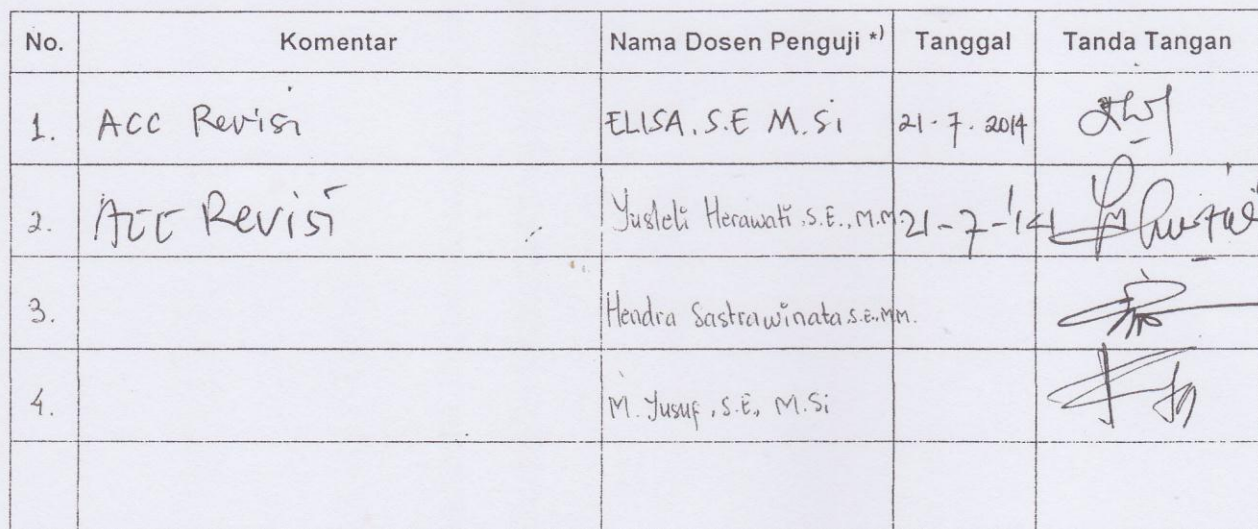 No. Komentar Nama Dosen Penguji *) Tanggal Tanda Tangan
1. ACC Revisi ELISA, S.E M.Si 21 - 7 - 2014
2. ACC Revisi Yusleli Herawati, S.E., M.M 21-7-'14
3. Hendra Sastrawinata S.E., MM.
4. M. Yusuf, S.E, M.Si